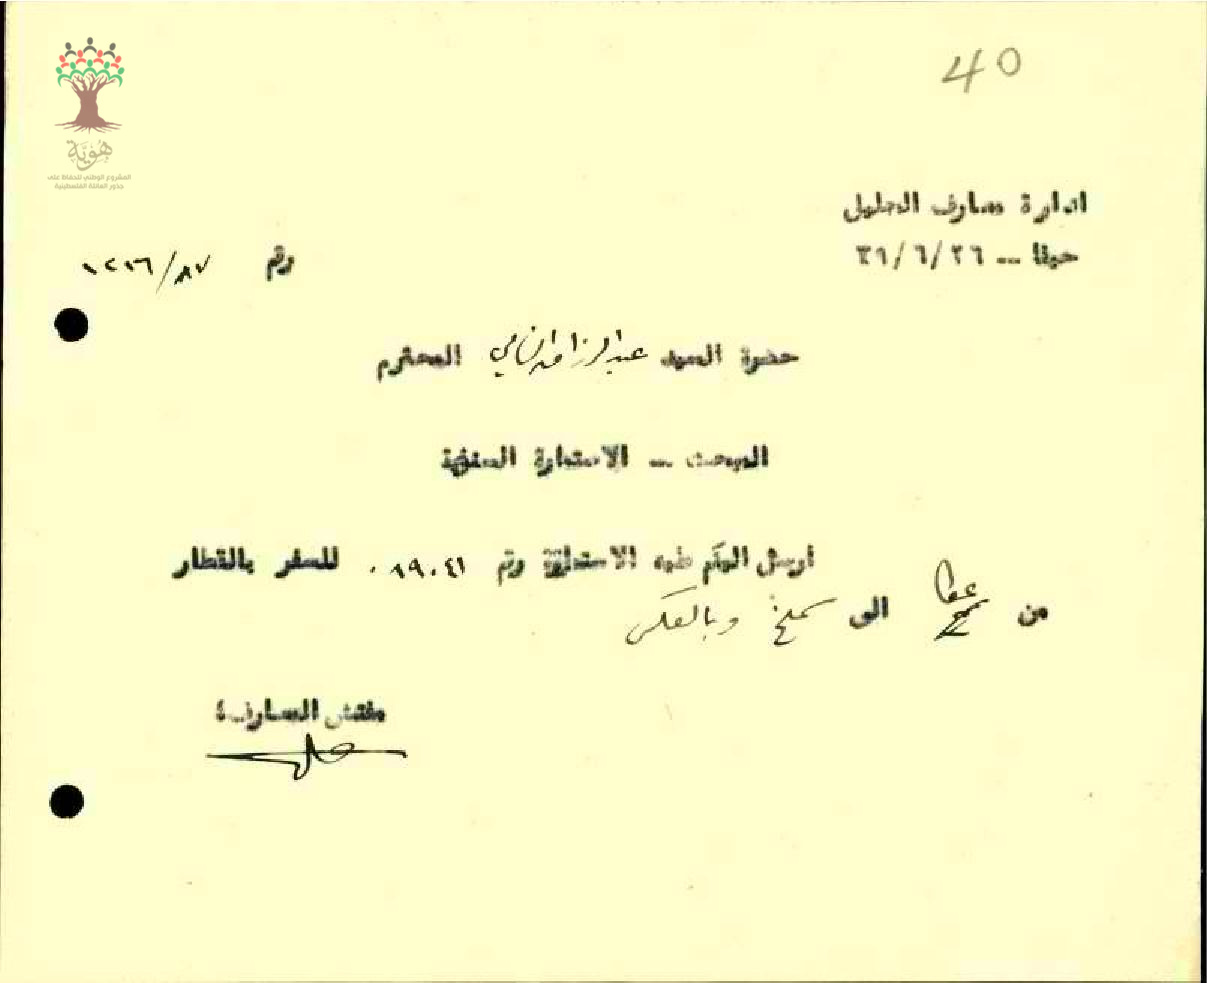 40
هوية
المشروع الوطني للحفاظ على
جذور العائلة الفلسطينية
ادارة معارف الجليل
حيفا - ٢٦/٦/٣٩
رقم ٨٧/١٢١٦
حضرة السيد عبد الرزاق المحترم
المبحث - الاستمارة السفرية
ارسل اليكم طيه الاستمارة رقم ٠٨٩٠٤١ للسفر بالقطار
من الى سمخ وبالعكس
مفتش المعارف؛